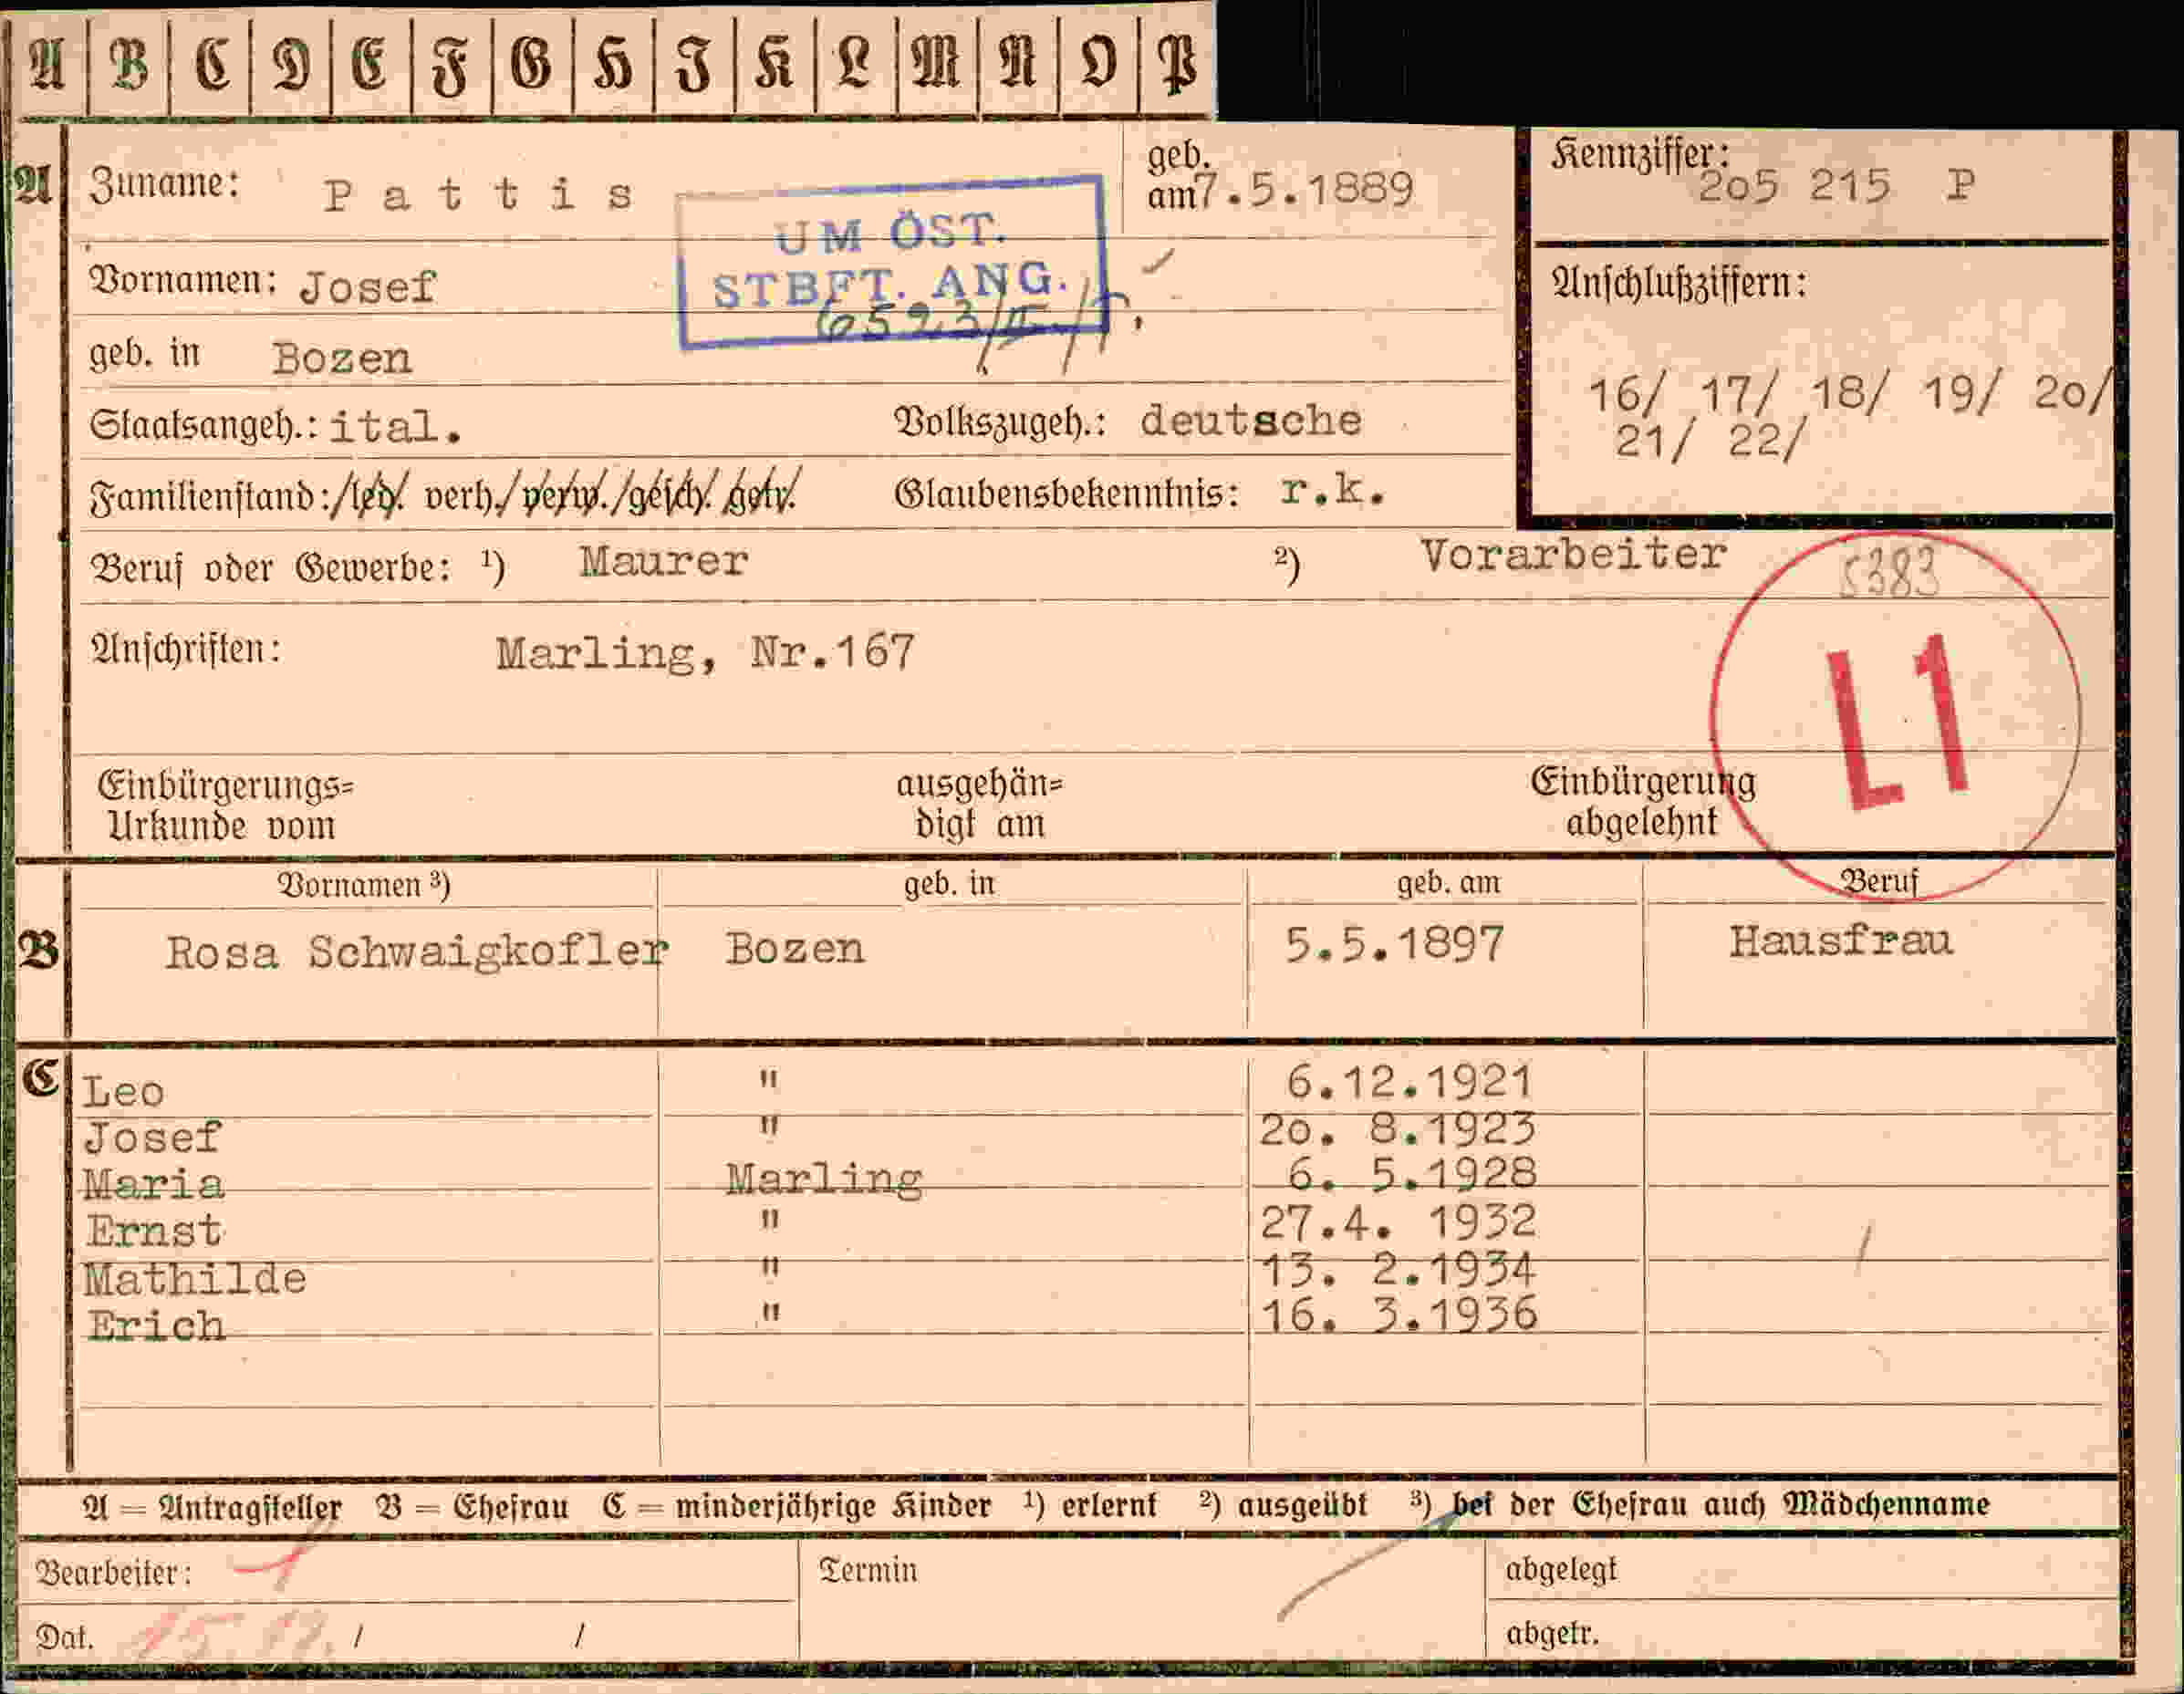 A B C D E F G H I K L M N O P
A Zuname: Pattis geb. am 7.5.1889
Kennziffer: 2o5 215 P
UM ÖST.
STBFT. ANG.
Vornamen: Josef
geb. in Bozen
Anschlußziffern:
16/ 17/ 18/ 19/ 2o/
21/ 22/
Staatsangeh.: ital. Volkszugeh.: deutsche
Familienstand: /led. verh./ verw./gesch. getr. Glaubensbekenntnis: r.k.
Beruf oder Gewerbe: ¹) Maurer ²) Vorarbeiter
5383
Anschriften: Marling, Nr.167
L1
Einbürgerungs=
Urkunde vom
ausgehän=
digt am
Einbürgerung
abgelehnt
Vornamen ³) geb. in geb. am Beruf
B Rosa Schwaigkofler Bozen 5.5.1897 Hausfrau
C Leo " 6.12.1921
Josef " 2o. 8.1923
Maria Marling 6. 5.1928
Ernst " 27.4. 1932
Mathilde " 13. 2.1934
Erich " 16. 3.1936
A = Antragsteller B = Ehefrau C = minderjährige Kinder ¹) erlernt ²) ausgeübt ³) bei der Ehefrau auch Mädchenname
Bearbeiter: Termin abgelegt
Dat. / / abgetr.